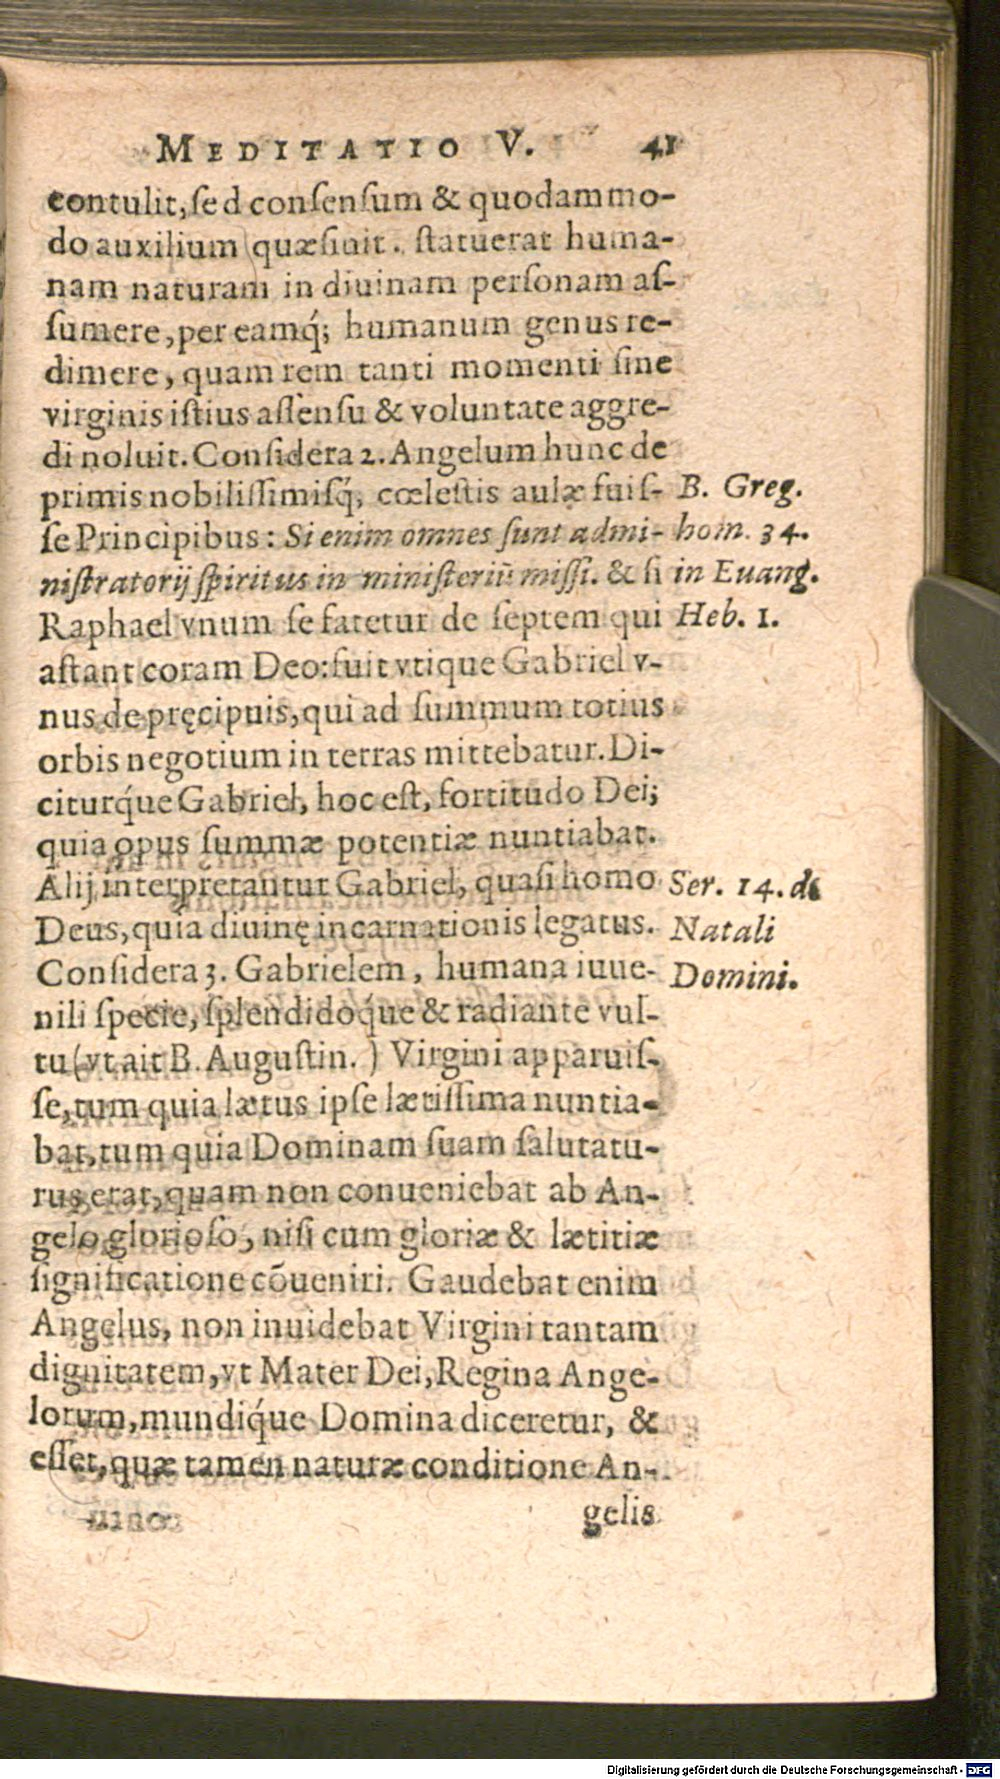 MEDITATIO V. 41
contulit, sed consensum & quodammo-
do auxilium quæsiuit. statuerat huma-
nam naturam in diuinam personam as-
sumere, per eamq́; humanum genus re-
dimere, quam rem tanti momenti sine
virginis istius assensu & voluntate aggre-
di noluit. Considera 2. Angelum hunc de
primis nobilissimisq́; cœlestis aulæ fuis-
se Principibus: Si enim omnes sunt admi-
nistratorij spiritus in ministeriū missi. & si
Raphael vnum se fatetur de septem qui
astant coram Deo: fuit vtique Gabriel v-
nus de pręcipuis, qui ad summum totius
orbis negotium in terras mittebatur. Di-
citurq́ue Gabriel, hoc est, fortitudo Dei;
quia opus summæ potentiæ nuntiabat.
Alij interpretantur Gabriel, quasi homo
Deus, quia diuinę incarnationis legatus.
Considera 3. Gabrielem, humana iuue-
nili specie, splendidoq́ue & radiante vul-
tu (vt ait B. Augustin.) Virgini apparuis-
se, tum quia lætus ipse lætissima nuntia-
bat, tum quia Dominam suam salutatu-
rus erat, quam non conueniebat ab An-
gelo glorioso, nisi cum gloriæ & lætitiæ
significatione cōueniri. Gaudebat enim
Angelus, non inuidebat Virgini tantam
dignitatem, vt Mater Dei, Regina Ange-
lorum, mundiq́ue Domina diceretur, &
esset, quæ tamen naturæ conditione An-
gelis
B. Greg.
hom. 34.
in Euang.
Heb. 1.
Ser. 14. de
Natali
Domini.
Digitalisierung gefördert durch die Deutsche Forschungsgemeinschaft - DFG